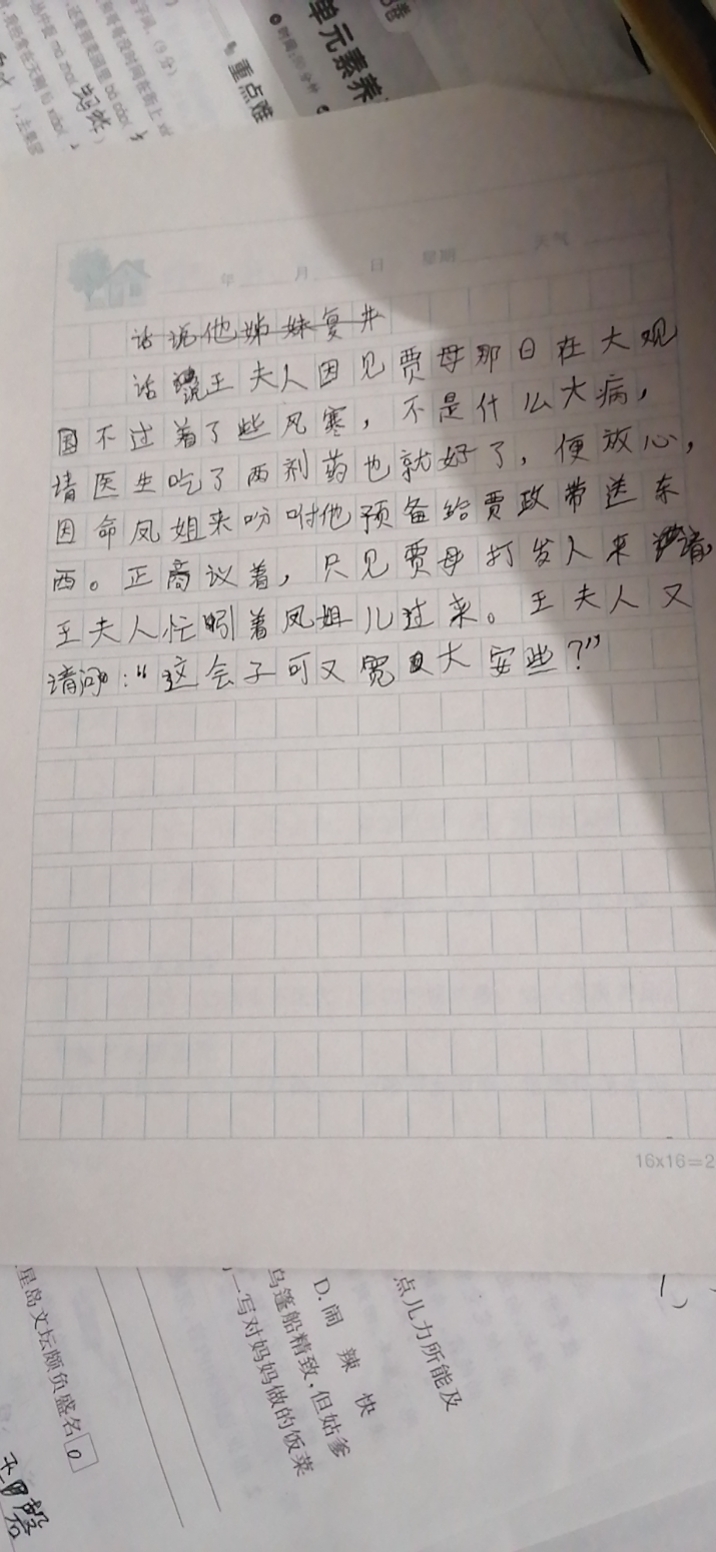 单元素养
重点难
年 月 日 星期 天气
话说他姊妹复进
话说王夫人因见贾母那日在大观
园不过着了些风寒，不是什么大病，
请医生吃了两剂药也就好了，便放心，
因命凤姐来吩咐他预备给贾政带送东
西。正商议着，只见贾母打发人来请，
王夫人忙引着凤姐儿过来。王夫人又
请问：“这会子可又宽大安些？”
16x16=2
点儿力所能及
D.闹 辣 快
乌篷船精致，但姑爹
一写对妈妈做的饭菜
星岛文坛颇负盛名